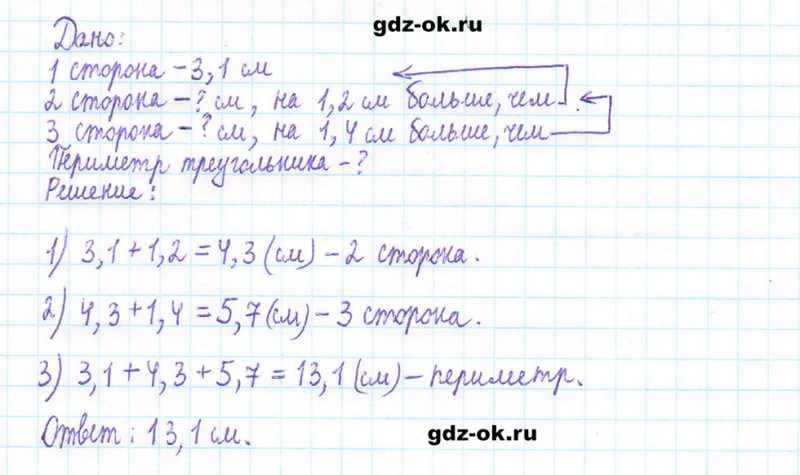 gdz-ok.ru
Дано:
1 сторона – 3,1 см
2 сторона – ? см, на 1,2 см больше, чем
3 сторона – ? см, на 1,4 см больше, чем
Периметр треугольника – ?
Решение:
1) 3,1 + 1,2 = 4,3 (см) – 2 сторона.
2) 4,3 + 1,4 = 5,7 (см) – 3 сторона.
3) 3,1 + 4,3 + 5,7 = 13,1 (см) – периметр.
Ответ: 13,1 см.
gdz-ok.ru